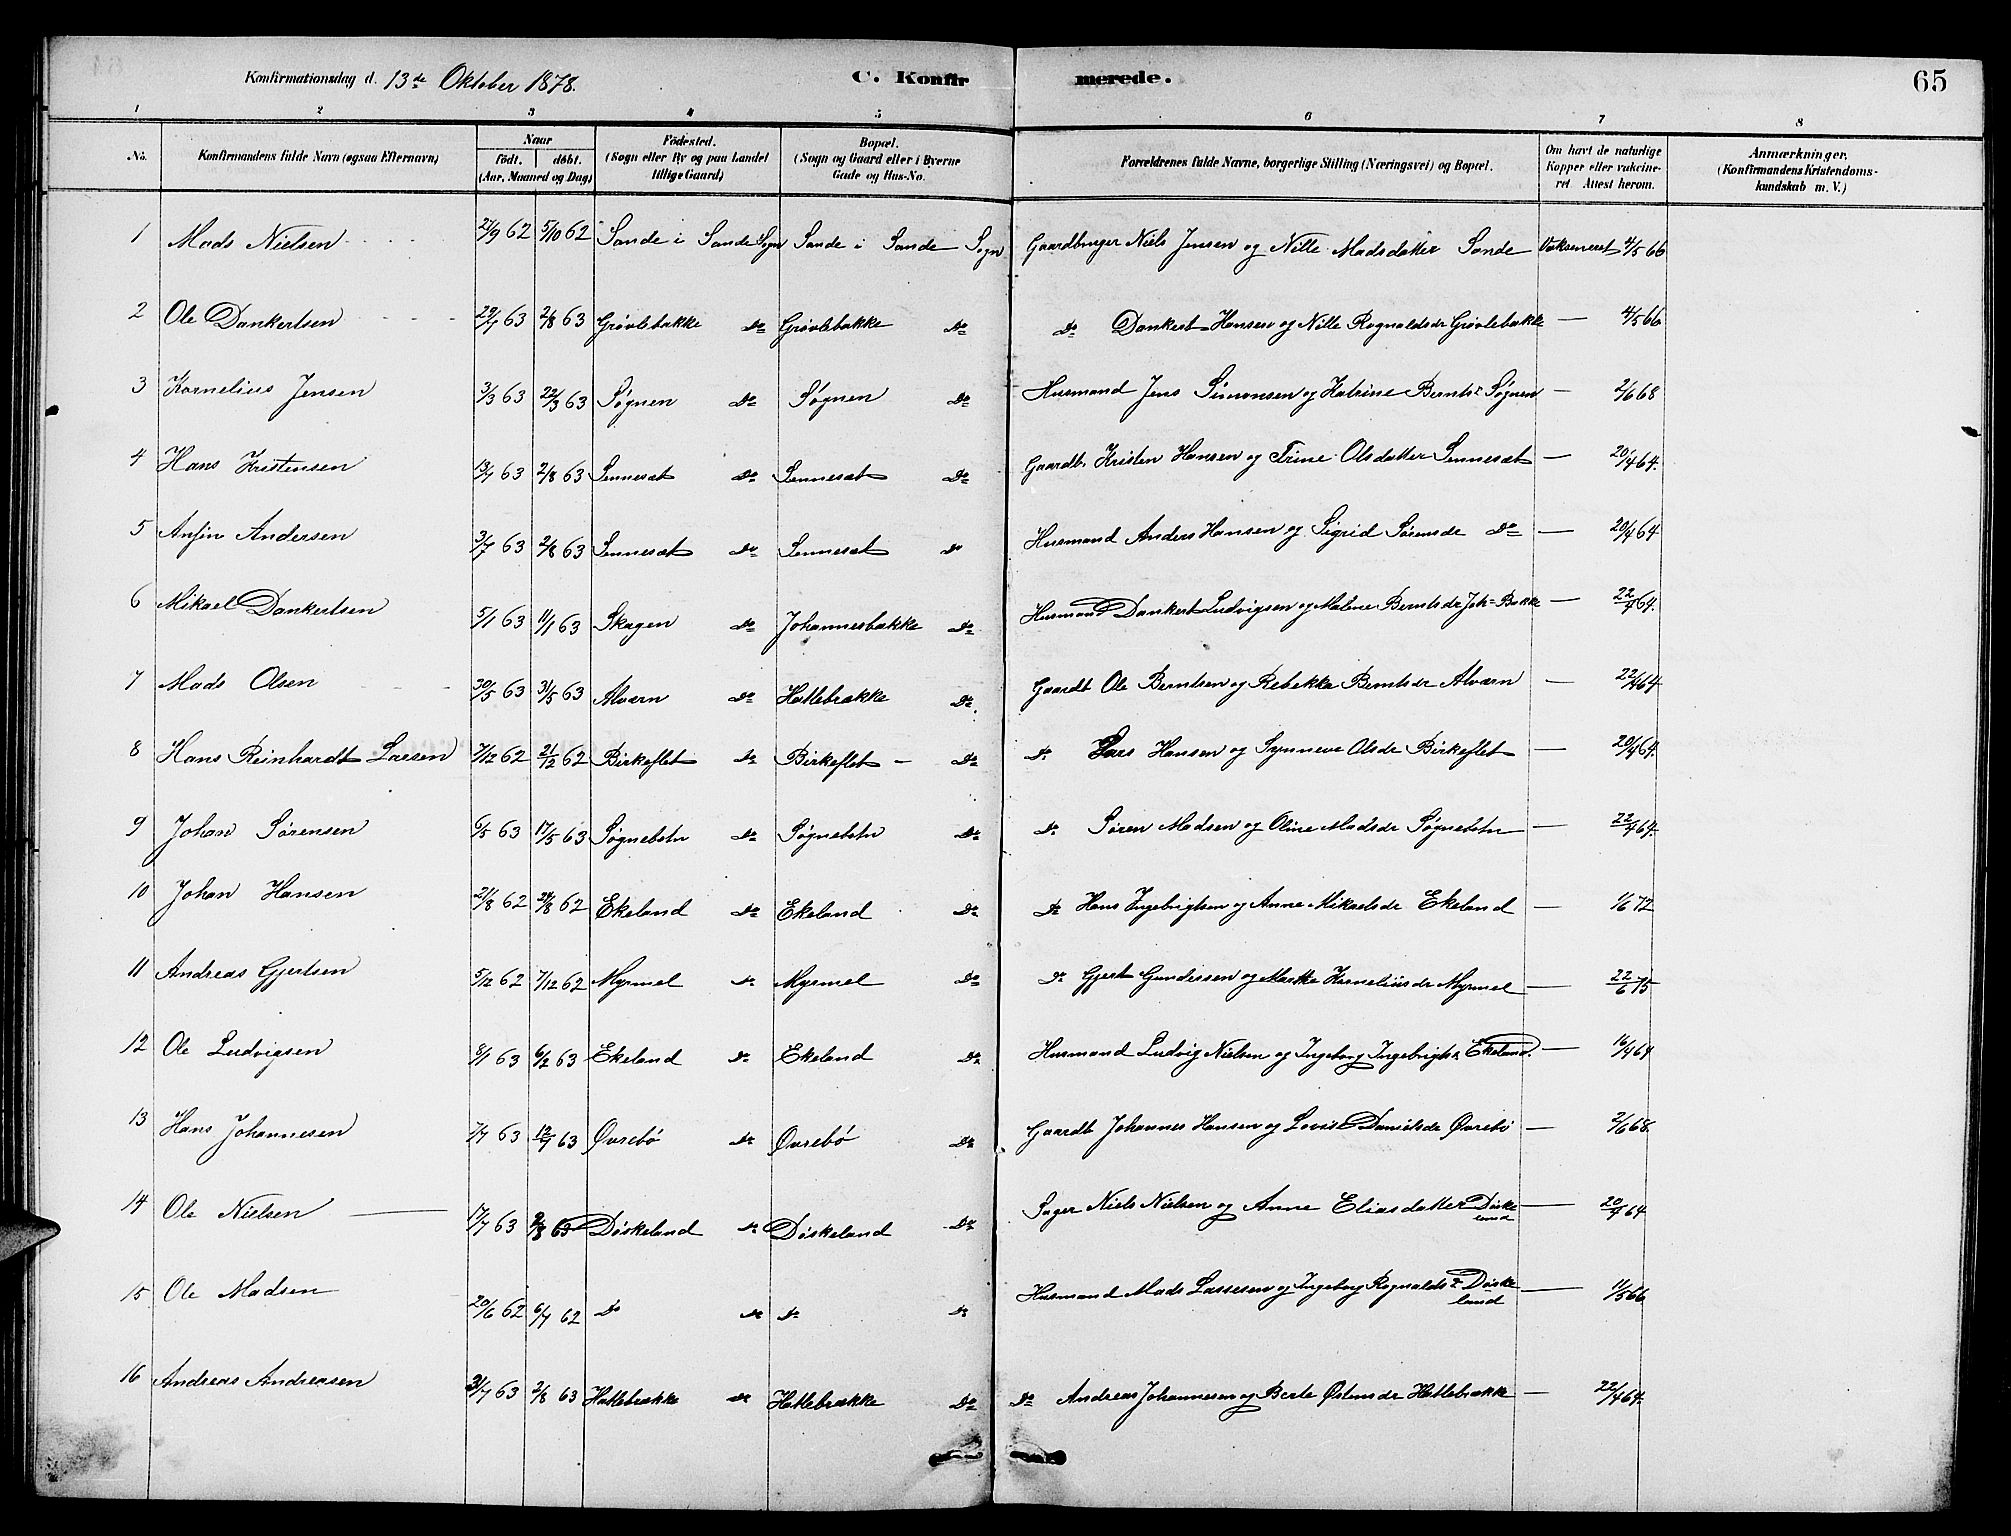 Konfirmationsdag d. 13de Oktober 1878.
C. Konfirmerede.
65
1 2 3 4 5 6 7 8
No. Konfirmandens fulde Navn (ogsaa Efternavn) Naar födt. döbt. (Aar, Maaned og Dag) Födested. (Sogn eller By og paa Landet tillige Gaard) Bopæl. (Sogn og Gaard eller i Byerne Gade og Hus-No. Forældrenes fulde Navne, borgerlige Stilling (Næringsvei) og Bopæl. Om havt de naturlige Kopper eller vakcineret Attest herom. Anmærkninger, (Konfirmandens Kristendomskundskab m. V.)
1 Mads Nielsen 27/9 62 5/10 62 Sande i Sande Sogn Sande i Sande Sogn Gaardbruger Niels Jensen og Nille Madsdatter Sande Vaksineret 4/5 66
2 Ole Dankertsen 29/7 63 2/8 63 Grøvlebakke Do Grøvlebakke Do Do Dankert Hansen og Nille Rognaldsdr Grøvlebakke — 4/5 66
3 Kornelius Jensen 3/3 63 22/3 63 Søgnen Do Søgnen Do Husmand Jens Simonsen og Katrine Berntsdr Søgnen — 2/6 68
4 Hans Kristensen 13/7 63 2/8 63 Sennesæt Do Sennesæt Do Gaardb. Kristen Hansen og Trine Olsdatter Sennesæt — 20/4 64.
5 Anfin Andersen 3/7 63 2/8 63 Sennesæt Do Sennesæt Do Husmand Anders Hansen og Sigrid Sørensdr Do — 20/4 64
6 Mikael Dankertsen 5/1 63 11/1 63 Skagen Do Johannesbakke Do Husmand Dankert Ludvigsen og Malene Berntsdr Joh= Bakke — 22/4 64.
7 Mads Olsen 30/5 63 31/5 63 Alværn Do Hatlebrække Do. Gaardb Ole Berntsen og Rebekka Berntsdr Alværn — 22/4 64
8 Hans Reinhardt Larsen 7/12 62 21/12 62 Birkeflet Do Birkeflet — Do Do Lars Hansen og Synneve Olsdr Birkeflet — 20/4 64.
9 Johan Sørensen 6/5 63 17/5 63 Søgnebotn Do Søgnebotn Do Do Søren Madsen og Oline Madsdr Søgnebotn — 22/4 64.
10 Johan Hansen 21/8 62 24/8 62 Ekeland Do Ekeland Do Do Hans Ingebrigtsen og Anne Mikaelsdr Ekeland — 1/6 72
11 Andreas Gjertsen 5/12 62 7/12 62 Myrmel Do Myrmel Do Do Gjert Gundersen og Marthe Korneliusdr Myrmel — 22/6 75
12 Ole Ludvigsen 8/1 63 6/2 63 Ekeland Do Ekeland Do Husmand Ludvig Nielsen og Ingeborg Ingebrigtsdr Ekeland. — 16/4 64
13 Hans Johannesen 7/7 63 12/7 63 Øvrebø Do Øvrebø Do Gaardb Johannes Hansen og Lovise Danielsdr Øvrebø — 2/6 68.
14 Ole Nielsen 17/7 63 2/8 63 Døskeland Do Døskeland Do Sager Niels Nielsen og Anne Eliasdatter Døskeland — 20/4 64
15 Ole Madsen 20/6 62 6/7 62 Do Do Do Do Husmand Mads Lassesen og Ingeborg Rognaldsdr Døskeland — 11/5 66
16 Andreas Andreasen 31/7 63 2/8 63 Hatlebrække Do Hatlebrække Do Do Andreas Johannesen og Berte Østensdr Hatlebrække — 22/4 64.